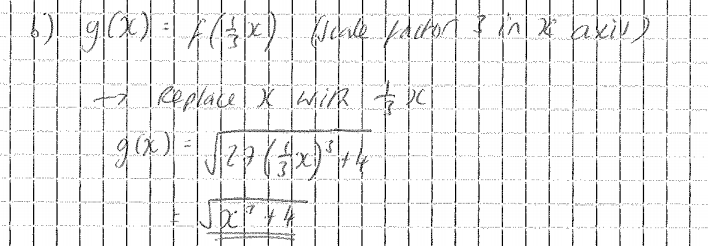 b) g(x) = f(⅓x) (scale factor 3 in x axis)
→ Replace x with ⅓x
g(x) = √(27(⅓x)³+4)
= √(x³+4)